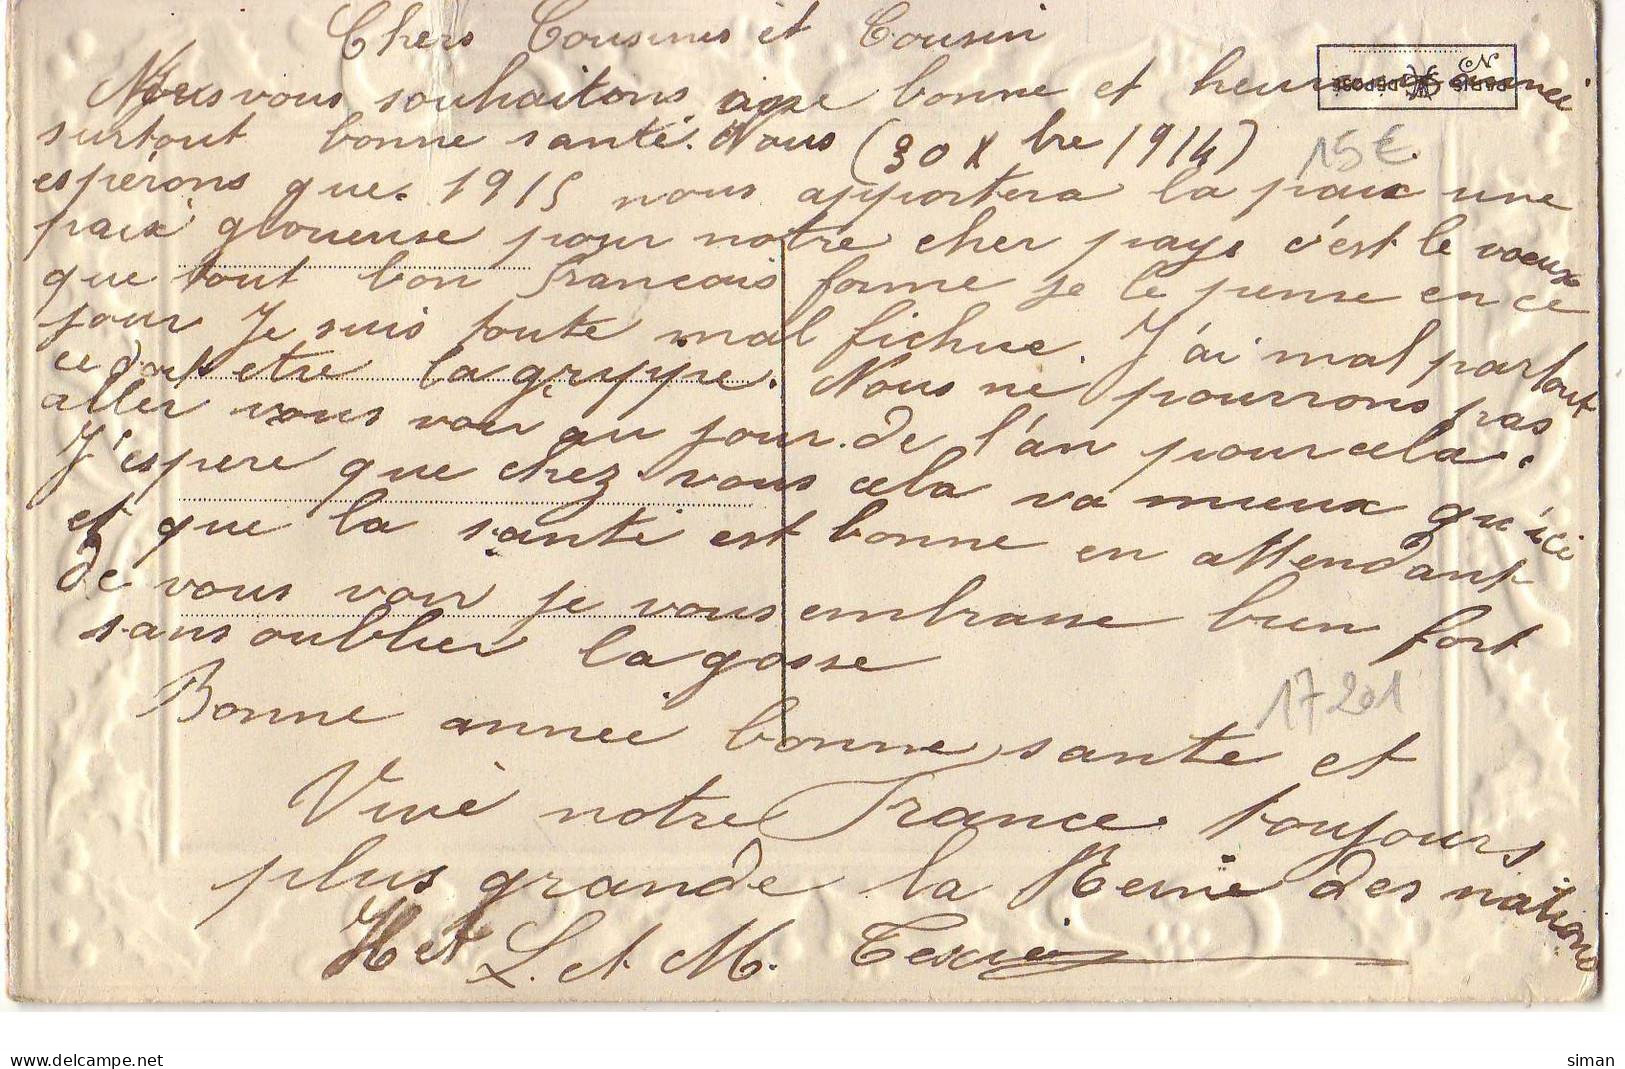 Chers Cousines et Cousin
Nous vous souhaitons une bonne et heureuse année
surtout bonne santé. Nous (30 Xbre 1914)
espérons que 1915 nous apportera la paix une
paix glorieuse pour notre cher pays c'est le voeux
que tout bon francais forme je le pense en ce
jour Je suis toute mal fichue. J'ai mal partout
ce doit etre la grippe. Nous ne pourrons pas
aller vous voir au jour de l'an pour cela.
J'espere que chez vous cela va mieux qu'ici
et que la santé est bonne en attendant
de vous voir je vous embrasse bien fort
sans oublier la gosse
Bonne année bonne sante et
Vive notre France toujours
plus grande la Reine des nations
H et L. et M. Texier
PARIS DÉPOSÉ
No
15€
17201
delcampe.net
siman